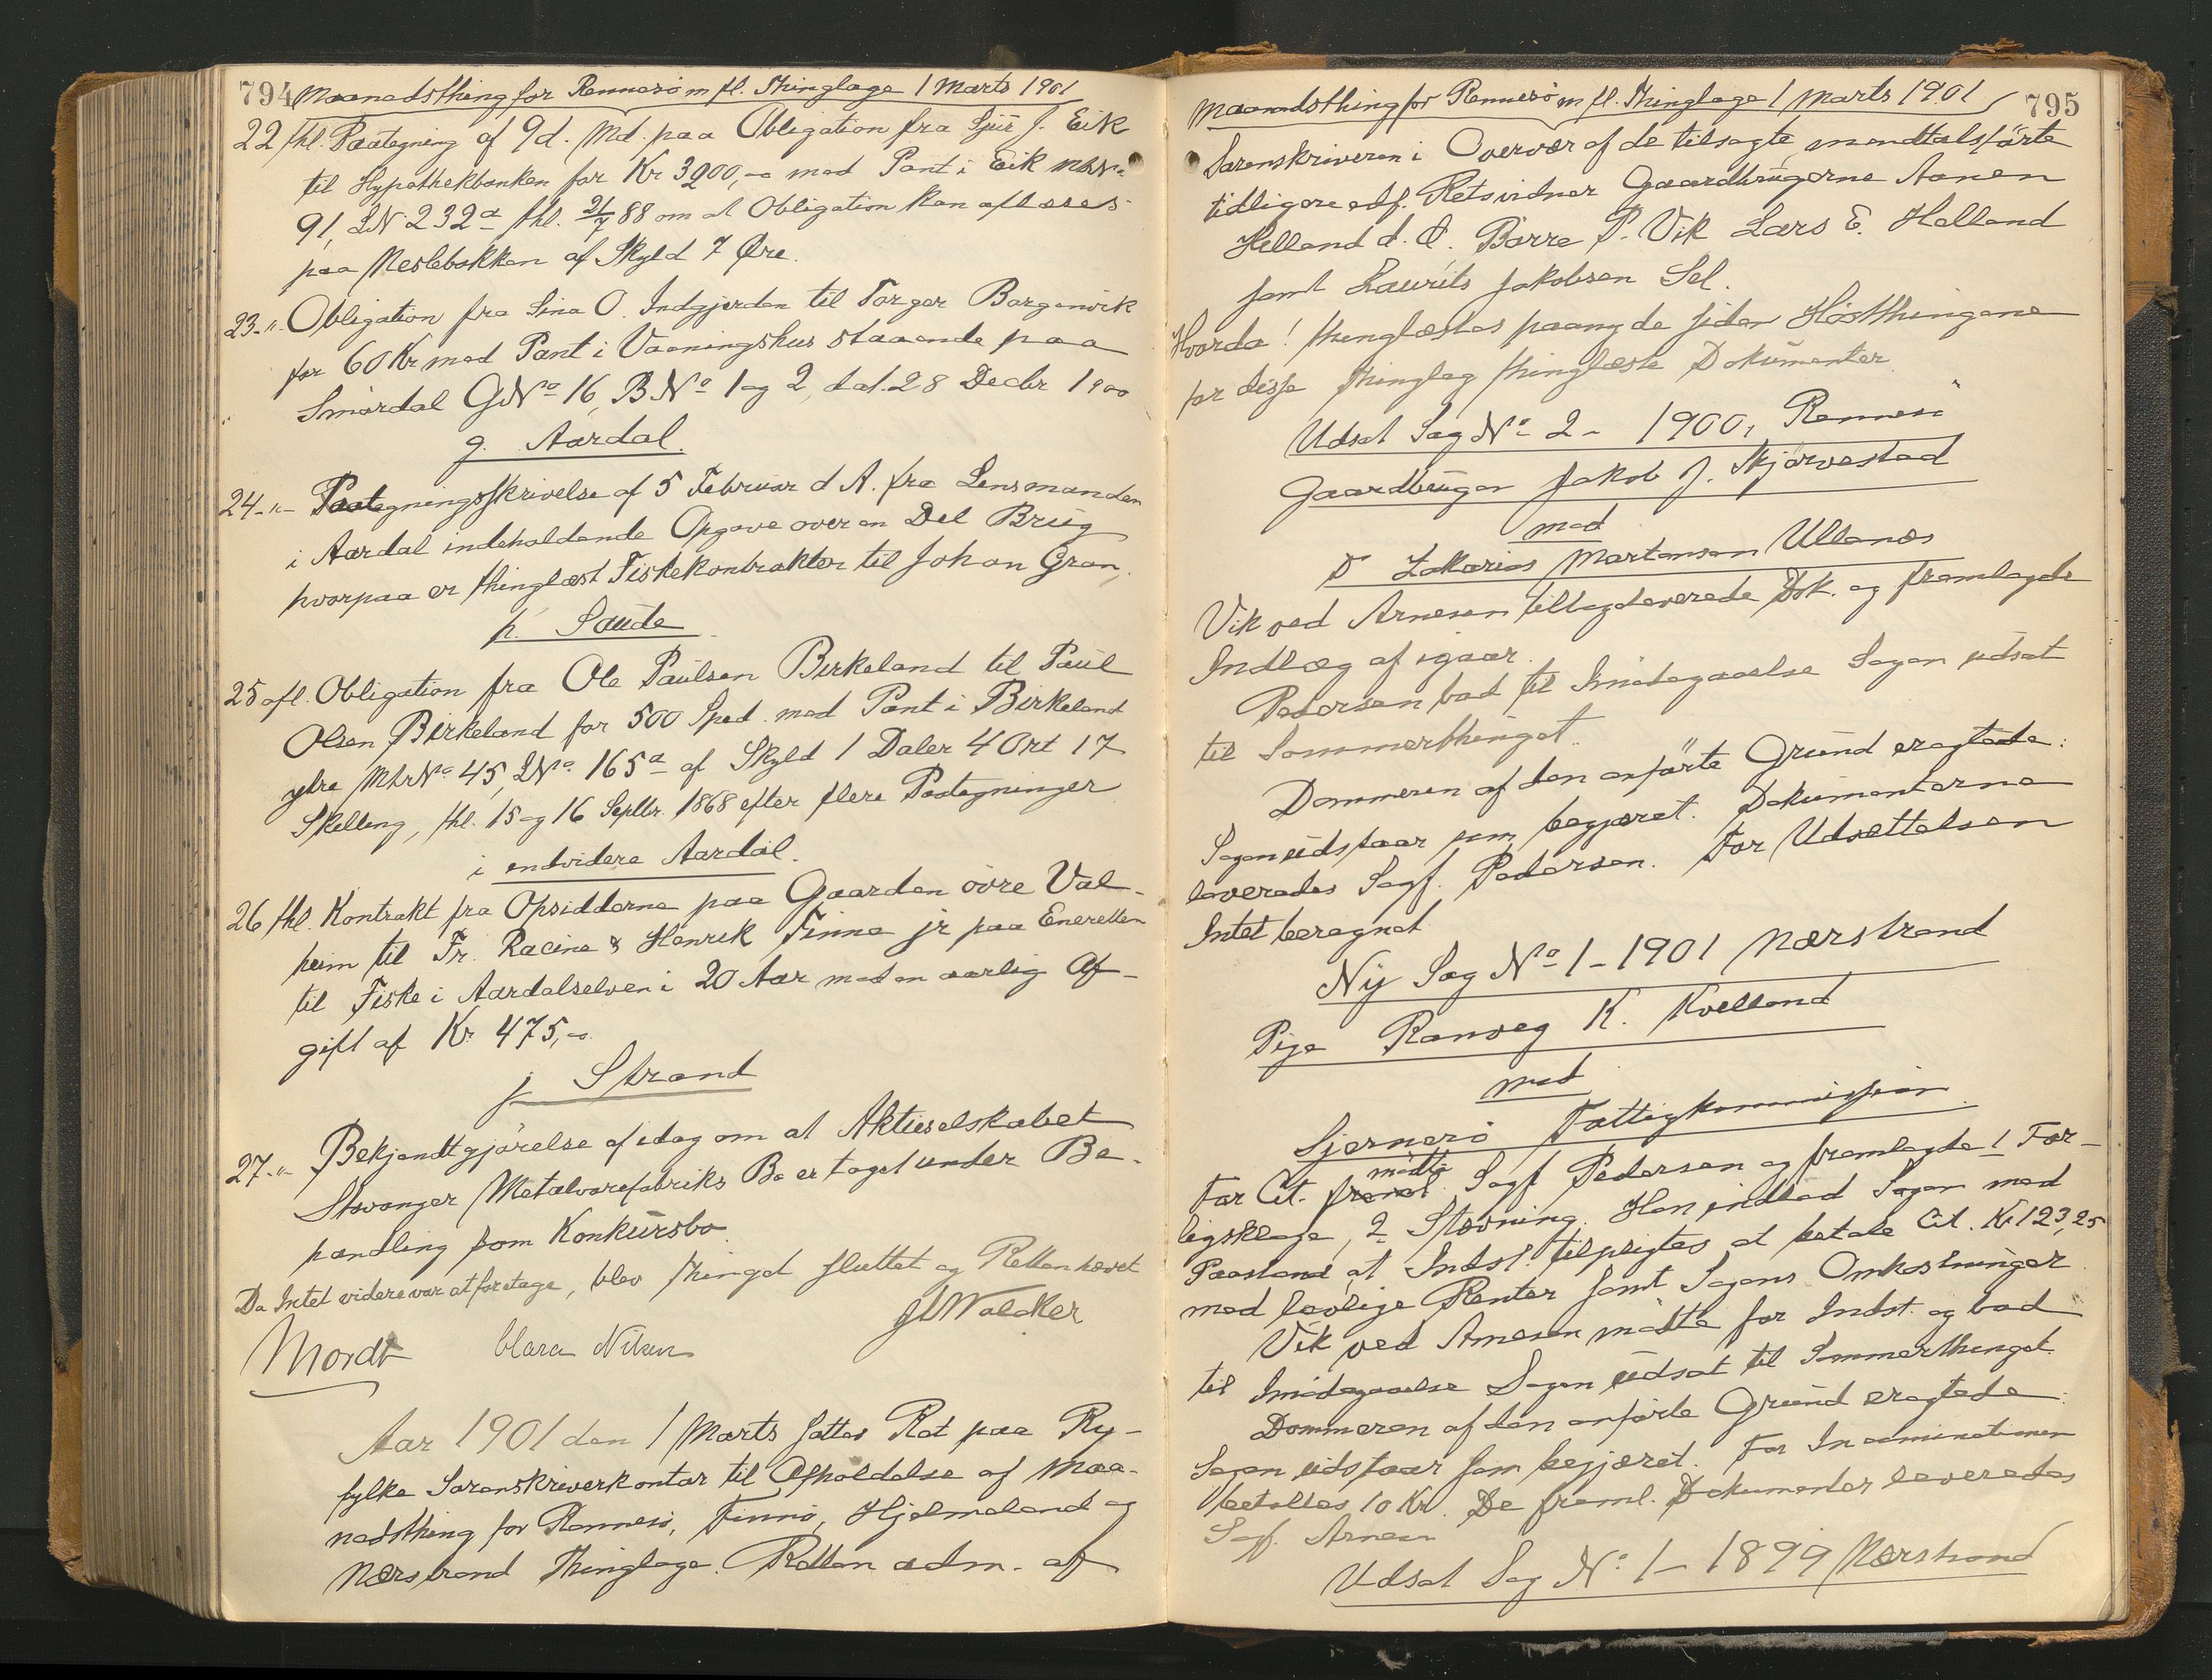 794 Maanedsthing for Rennesö m fl. Thinglage 1 Marts 1901
22 thl. Paategning af 9 d. Md. paa Obligation fra J. Eik
til Hypothekbanken for Kr 3200,- med Pant i Eik MtrNo
91, LNo 232a thl. 21/7 88 om at Obligation kan aflæses
paa Neslebakken af Skyld 7 Øre.
23 -"- Obligation fra Sina O. Indgjerden til Torger Bergevik
for 60 Kr med Pant i Vaaningshus staaende paa
Smördal GNo 16, BNo 1 og 2, dat. 28 Decbr 1900
g. Aardal.
24 -"- Paategningsskrivelse af 5 Februar d A. fra Lensmanden
i Aardal indeholdende Opgave over en Del Brug
hvorpaa er thinglæst Fiskekontrakter til Johan Gran.
h. Saude
25 afl. Obligation fra Ole Paulsen Birkeland til Paul
Olsen Birkeland for 500 Spd. med Pant i Birkeland
ytre MtrNo 45, LNo 165a af Skyld 1 Daler 4 Ort 17
Skelling, thl. 15 og 16 Septbr. 1868 efter flere Paategninger
i endvidere Aardal.
26 thl. Kontrakt fra Opsidderne paa Gaarden övre Val-
heim til Fr. Racine & Henrik Finne jr paa Eneretten
til Fiske i Aardalselven i 20 Aar mod en aarlig Af-
gift af Kr. 475,-
j Strand
27 -"- Bekjendtgjörelse af idag om at Aktieselskabet
Stavanger Metalvarefabriks Bo er taget under Be-
handling som Konkursbo.
Da Intet videre var at foretage, blev Thinget sluttet og Retten hævet
Mordt Clara Nilsen Walcker
Aar 1901 den 1 Marts sattes Ret paa Ry-
fylke Sorenskriverkontor til Afholdelse af Maa-
nedsthing for Rennesö, Finnö, Hjelmeland og
Nærstrand Thinglage. Retten adm. af
Maanedsthing for Rennesö m fl. Thinglage 1 Marts 1901 795
Sorenskriveren i Overvær af de tilsagte mandtalsförte
tidligere edf. Retsvidner Gaardbrugerne Aanen
Helland d. Æ. Börre P. Vik Lars E. Helland
samt Laurits Jakobsen Sel.
Hvorda! thinglæstes paany de siden Höstthingene
for disse Thinglag thinglæste Dokumenter.
Udsat Sag No 2 - 1900, Rennesö
Gaardbruger Jakob J. Skjörvestad
mod
D Zakarias Martensen Ullenæs
Vik ved Arnesen tilbageleverede Dok. og fremlagde
Indlæg af igaar.
Pedersen bad til Imödegaaelse Sagen udsat
til Sommerthinget.
Dommeren af den anförte Grund eragtede:
Sagen udstaar som begjæret. Dokumenterne
leveredes Sagf. Pedersen. For Udsættelsen
Intet beregnet
Ny Sag No 1 - 1901 Nærstrand
Pige Ranveg K. Kvelland
mod
Sjernerö Fattigkommission
For Cit. mödte Sagf Pedersen og fremlagde 1 For-
ligsklage, 2 Stævning. Han indlod Sagen med
Paastand at Indst. tilpligtes at betale Cit. Kr 123,25
med lovlige Renter samt Sagens Omkostninger
Vik ved Arnesen mödte for Indst. og bad
til Imödegaaelse Sagen udsat til Sommerthinget.
Dommeren af den anförte Grund eragtede:
Sagen udstaar som begjæret. For Incaminationen
betaltes 10 Kr. De freml. Dokumenter leveredes
Sagf. Arnesen
Udsat Sag No 1 - 1899 Nærstrand